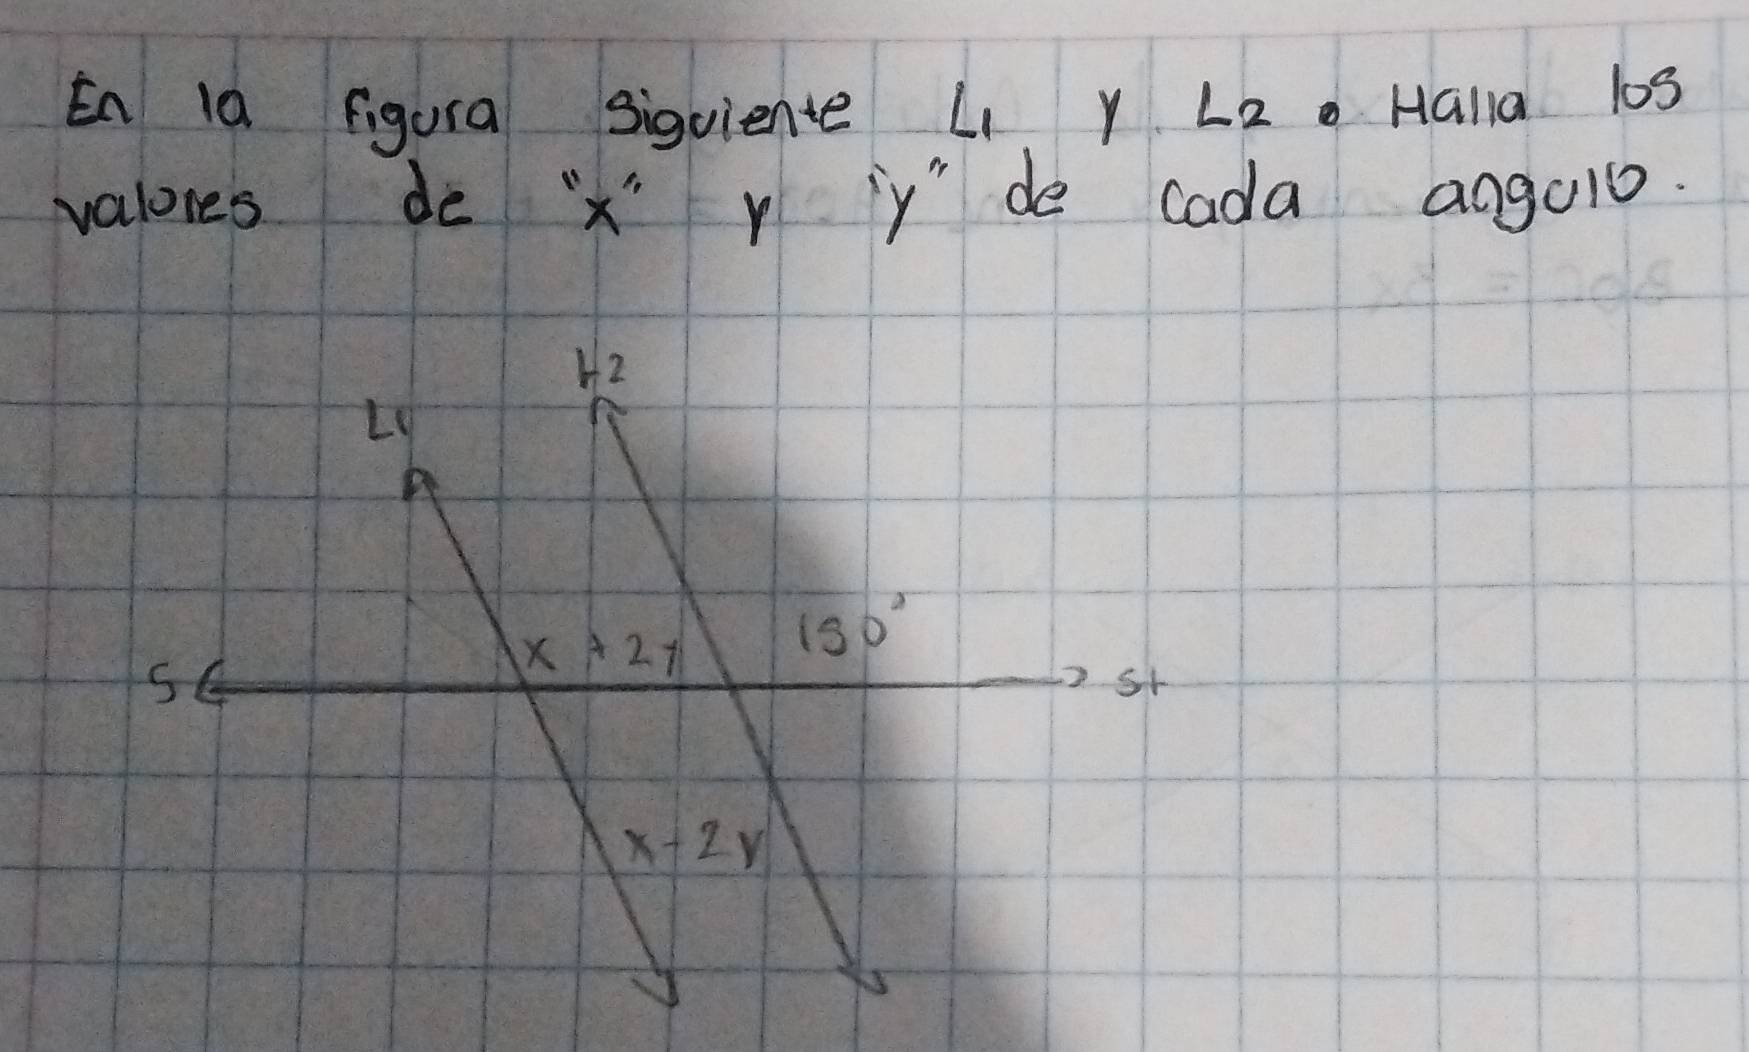 En la figura siguiente L1 y L2. Halla los
valores de "x" y "y" de cada angulo.
L2
L1
x + 2y
S
x - 2y